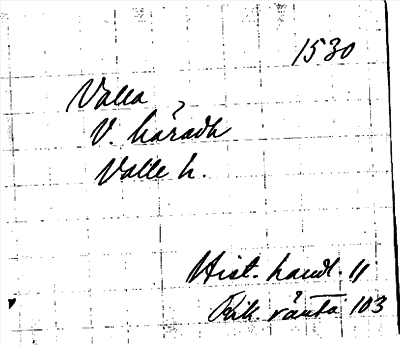 1530
Valla,
V. häradh
Valle h.
Hist. handl. 11
ränta 103